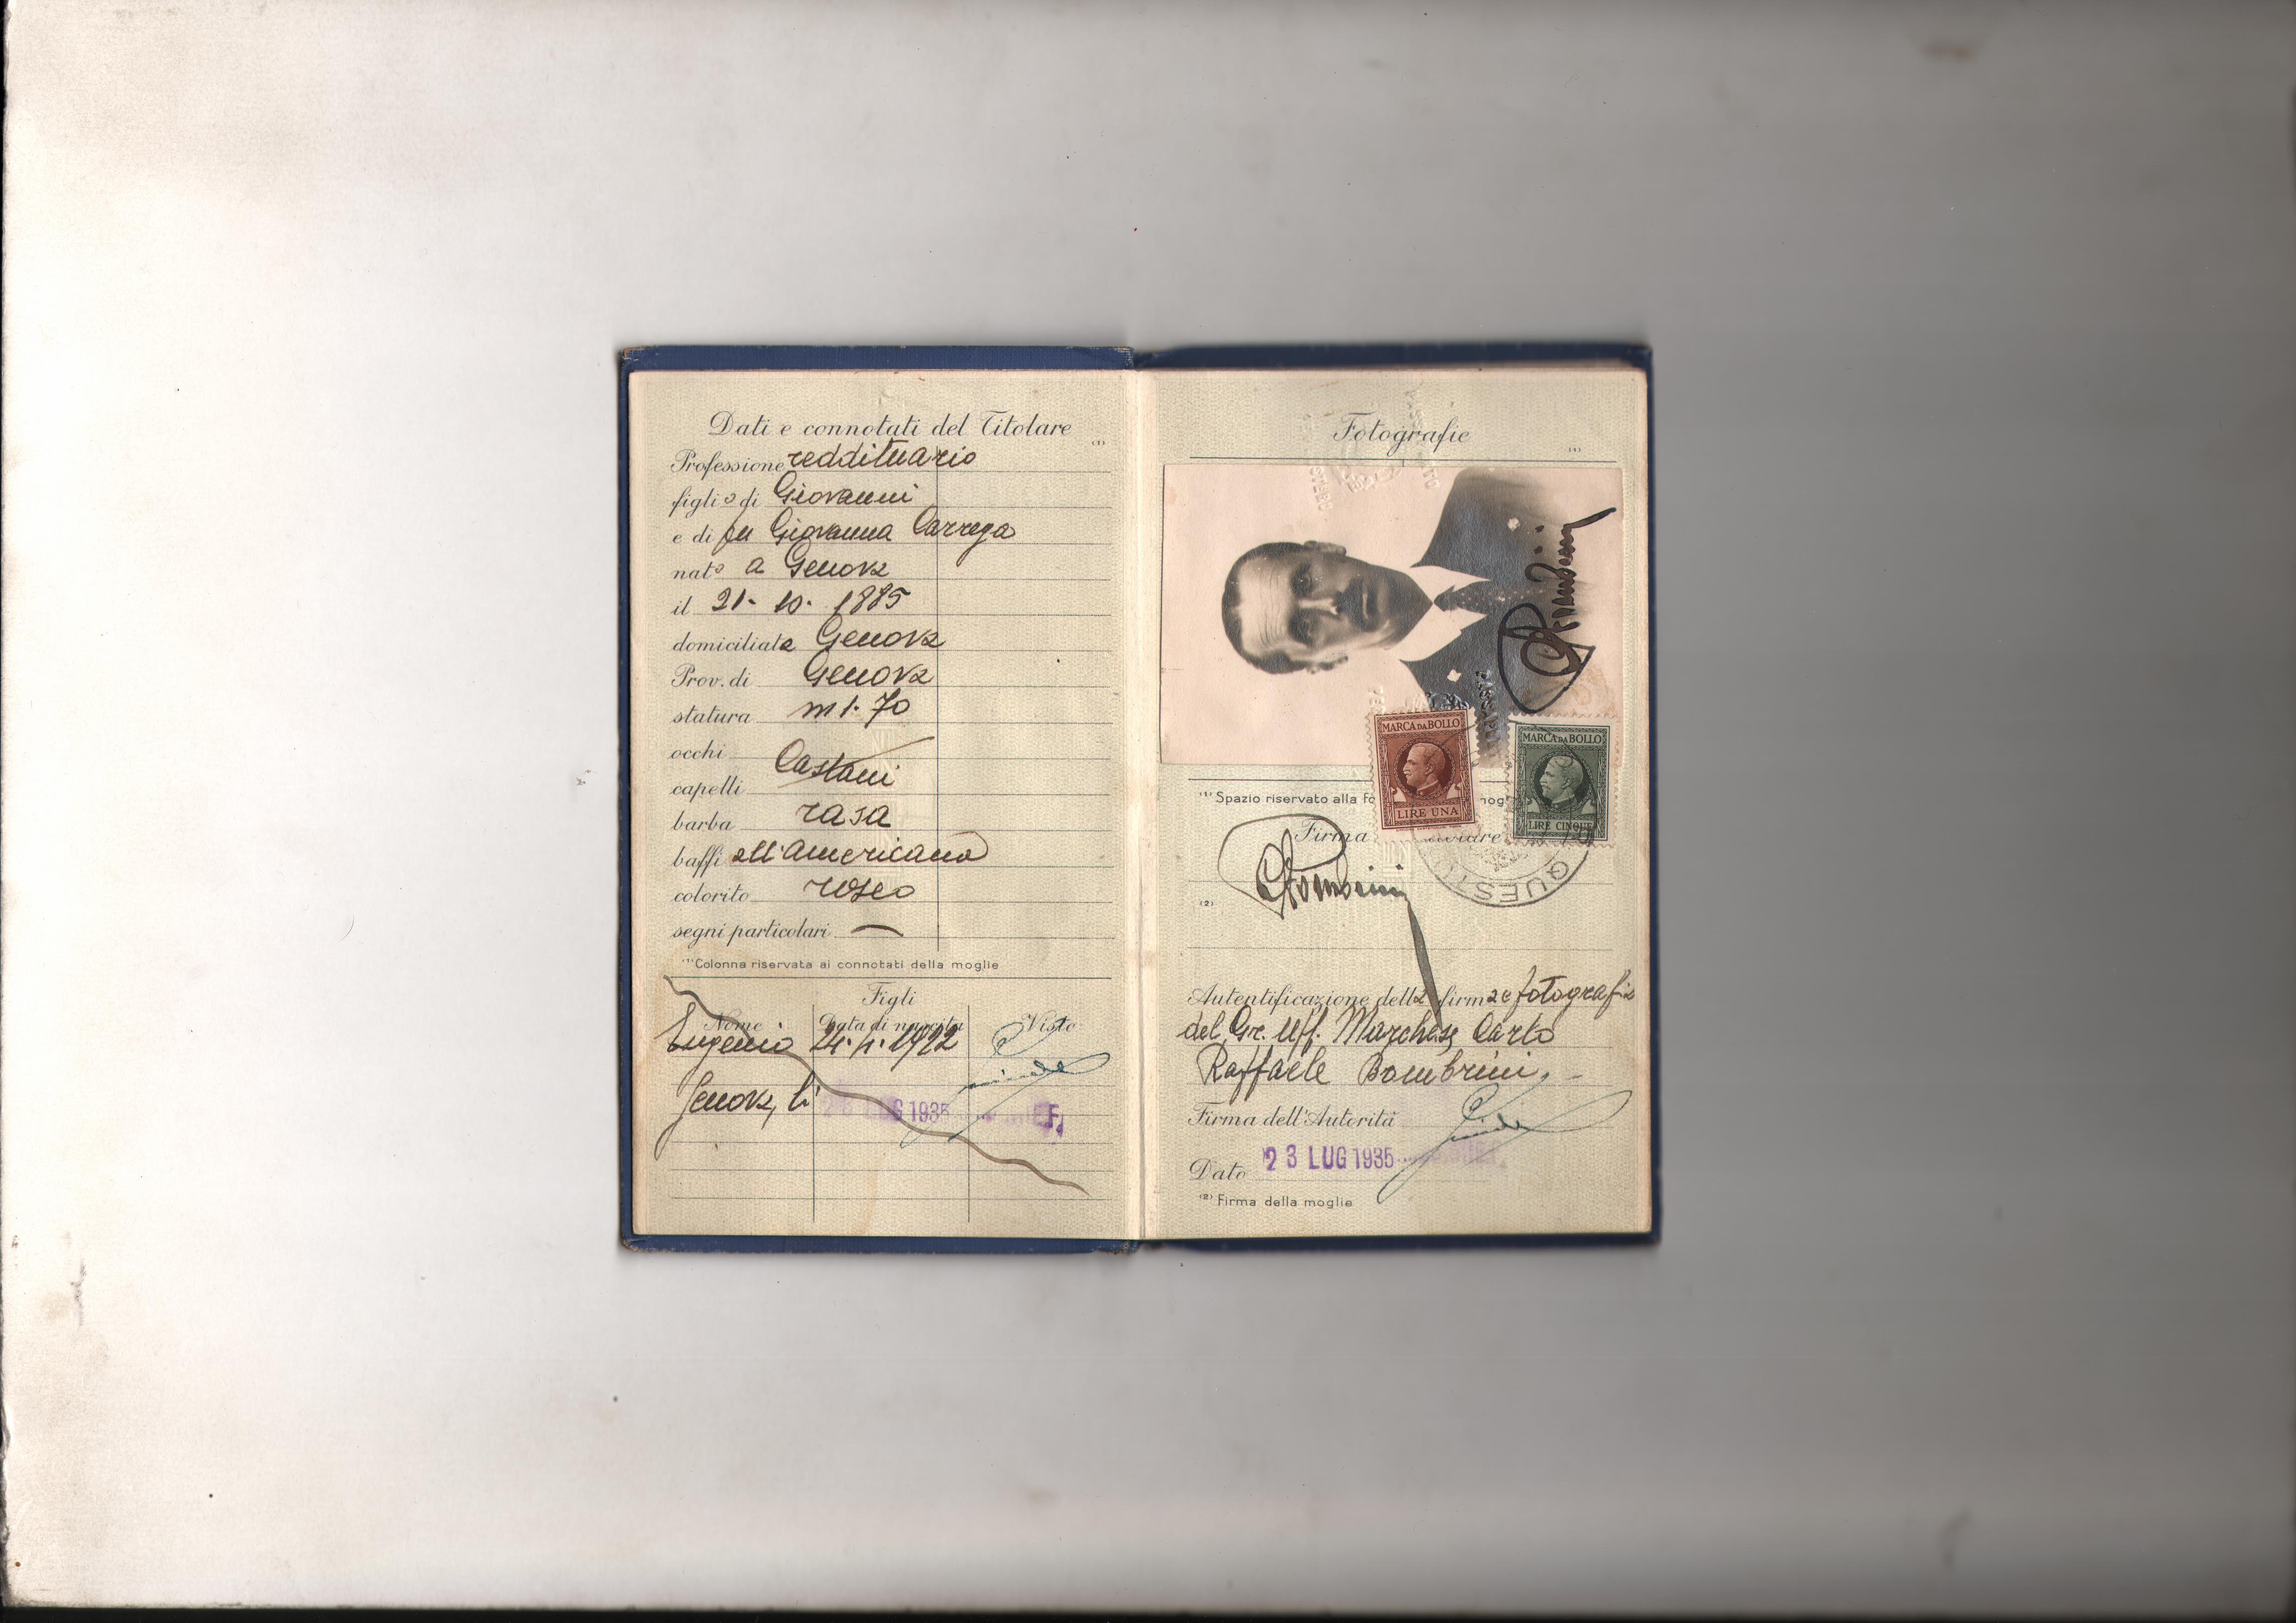 Dati e connotati del Titolare
(1)
Professione reddituario
figlio di Giovanni
e di fu Giovanna Carrega
nato a Genova
il 21-10-1885
domiciliato Genova
Prov. di Genova
statura m 1.70
occhi
Castani
capelli
barba rasa
baffi all'americana
colorito roseo
segni particolari —
(1) Colonna riservata ai connotati della moglie
Figli
Nome Data di nascita Visto
Eugenio 24.4.1922
Genova, lì LUG 1935
Fotografie
(1)
Bombrini
MARCA DA BOLLO
LIRE UNA
MARCA DA BOLLO
LIRE CINQUE
(1) Spazio riservato alla
Firma
QUEST
Bombrini
(2)
Autentificazione della firma e fotografia
del Gr. Uff. Marchese Carlo
Raffaele Bombrini
Firma dell'Autorità
Data 23 LUG 1935
(2) Firma della moglie